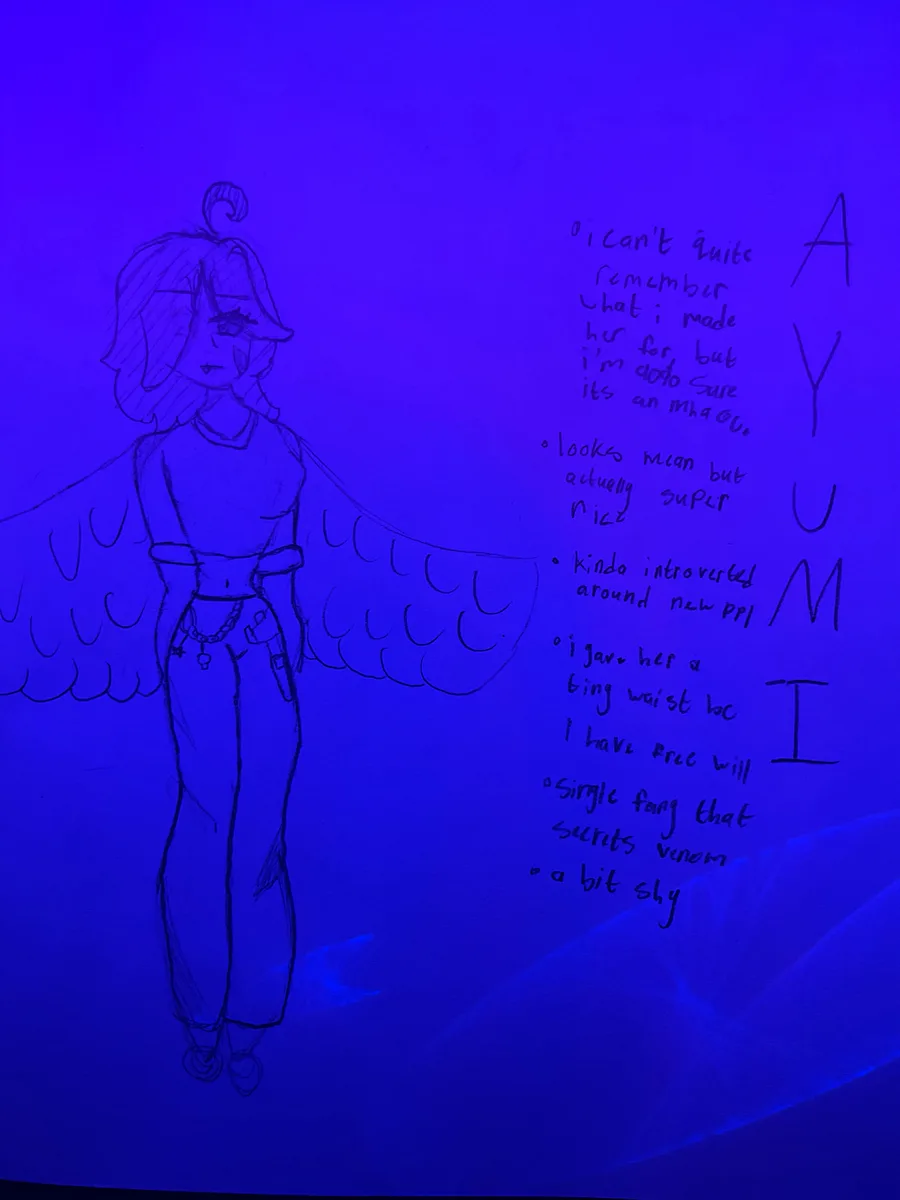 AYUMI
i can't quite
remember
what i made
her for but
i'm sure
its an mha oc.
looks mean but
actually super
nice
kinda introverted
around new ppl
i gave her a
tiny waist bc
I have free will
single fang that
secrets venom
a bit shy